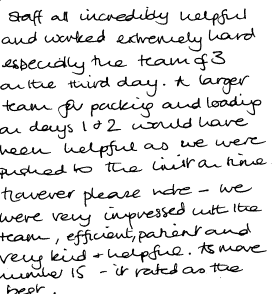 Staff all incredibly helpful
and worked extremely hard
especially the team of 3
on the third day. A larger
team for packing and loading
on days 1 + 2 would have
been helpful as we were
pushed to the limit on time
however please note - we
were very impressed with the
team, efficient, patient and
very kind + helpful. As move
number 15 - it rated as the
best.